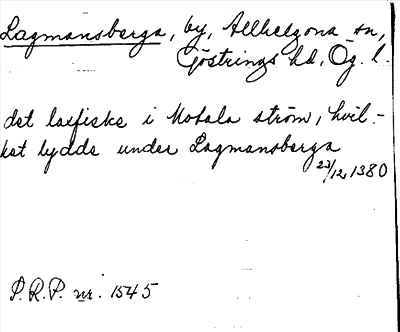 Lagmansberga, by, Allhelgona sn,
Göstrings hd, Ög. l.
det laxfiske i Motala ström, hvil-
ket lydde under Lagmansberga
23/12 1380
S.R.P. nr. 1545